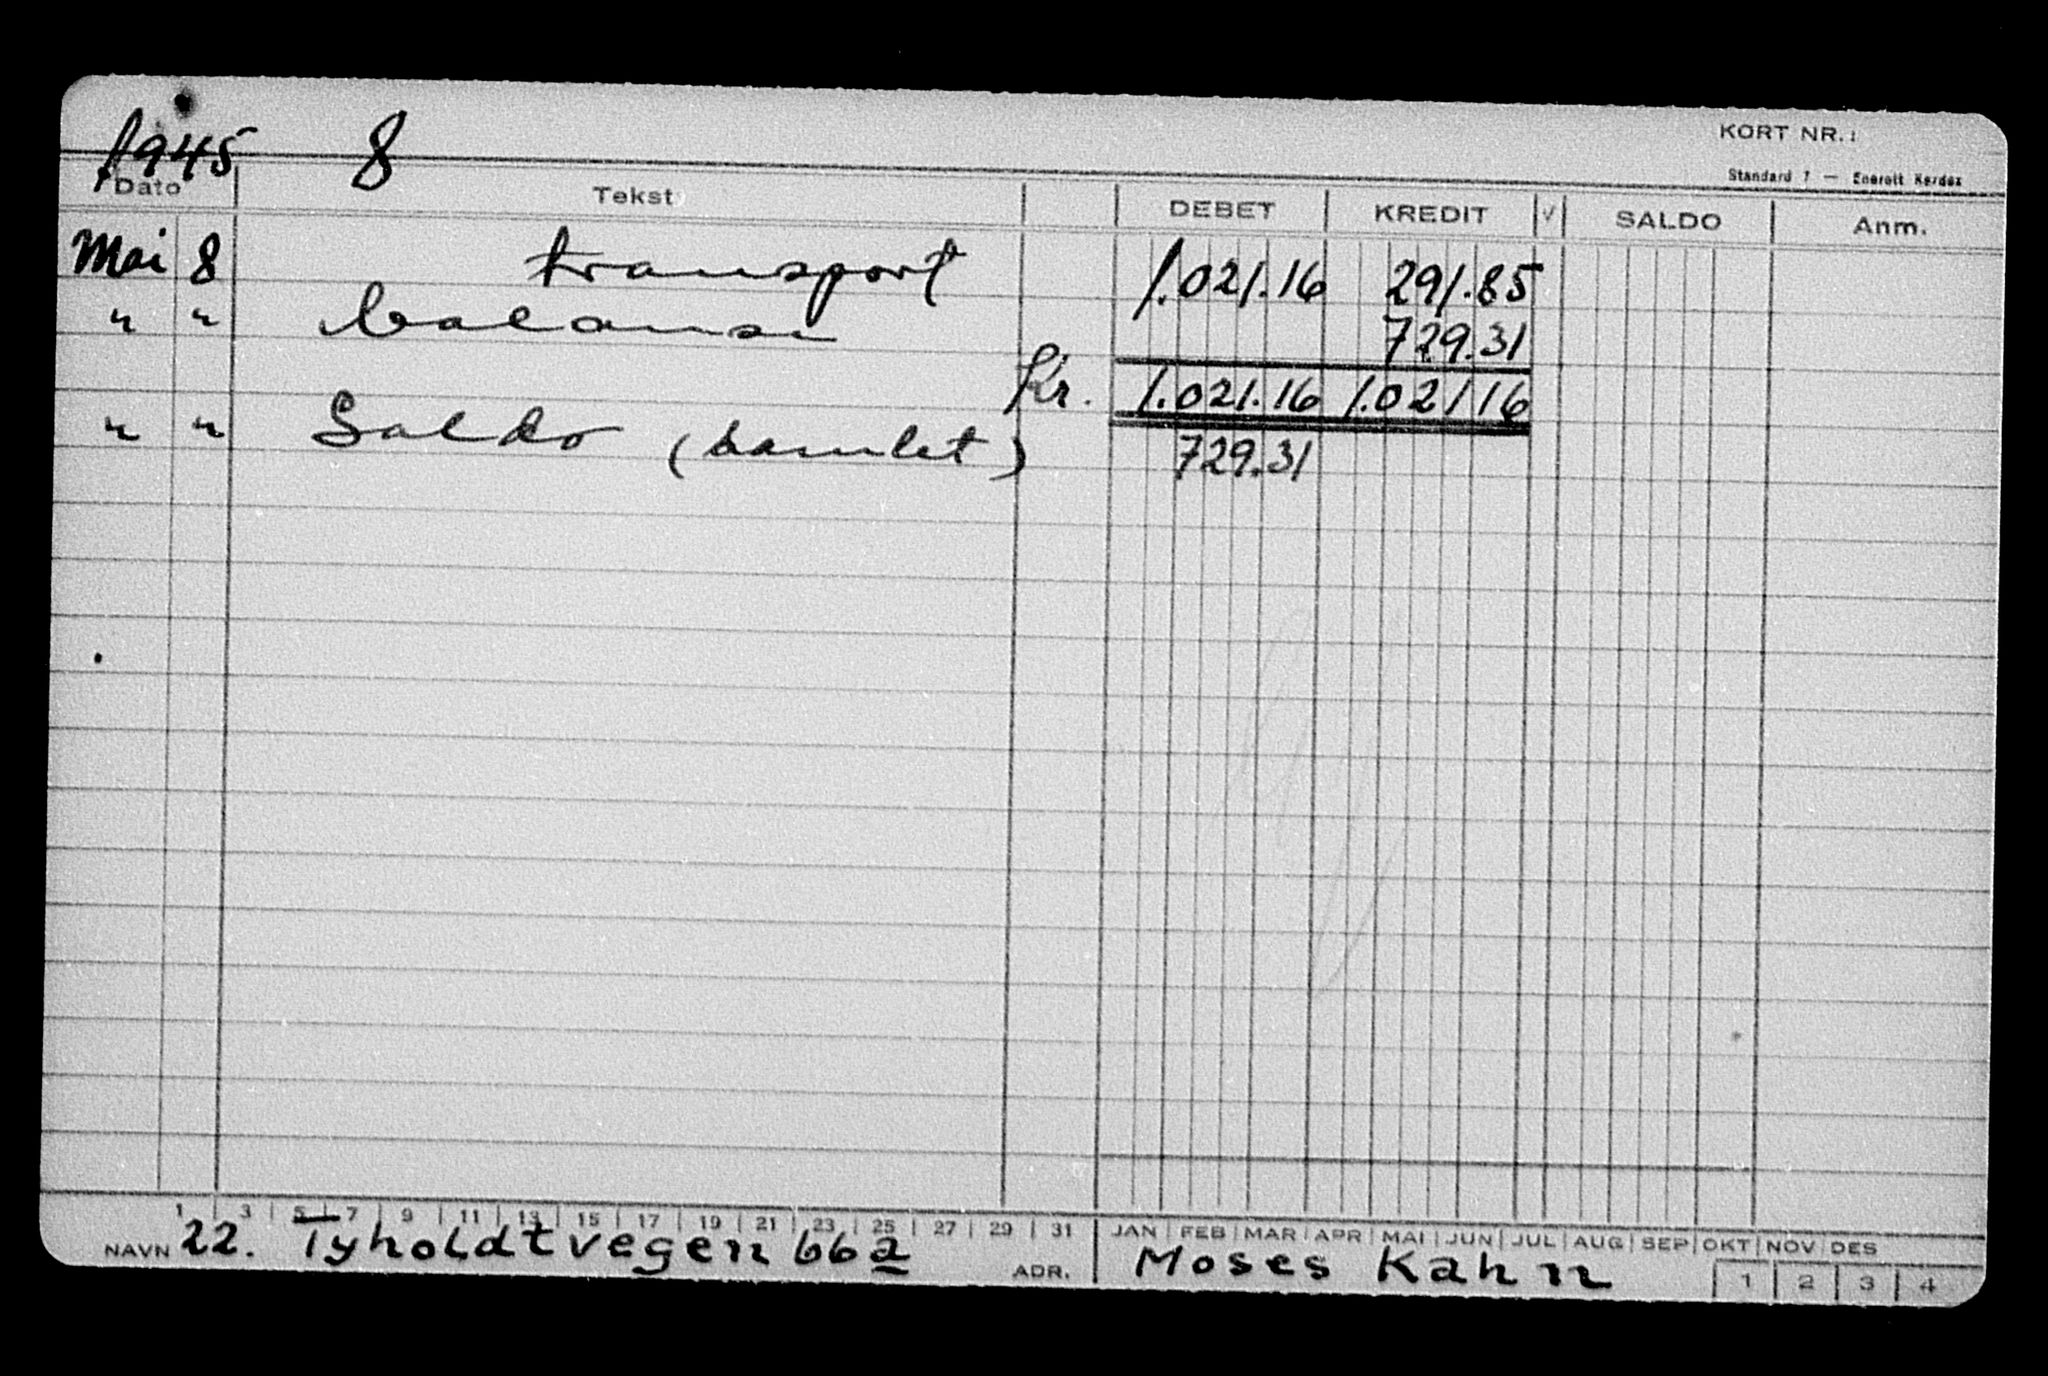 KORT NR.:
1945 8
Standard 7 — Enerett Kardex
Dato Tekst DEBET KREDIT √ SALDO Anm.
Mai 8 transport 1.021.16 291.85
" " balanse 729.31
Kr. 1.021.16 1.021 16
" " Saldo (samlet) 729.31
1 3 5 7 9 11 13 15 17 19 21 23 25 27 29 31 JAN FEB MAR APR MAI JUN JUL AUG SEP OKT NOV DES
NAVN 22. Tyholdtvegen 66a ADR. Moses Kahn 1 2 3 4